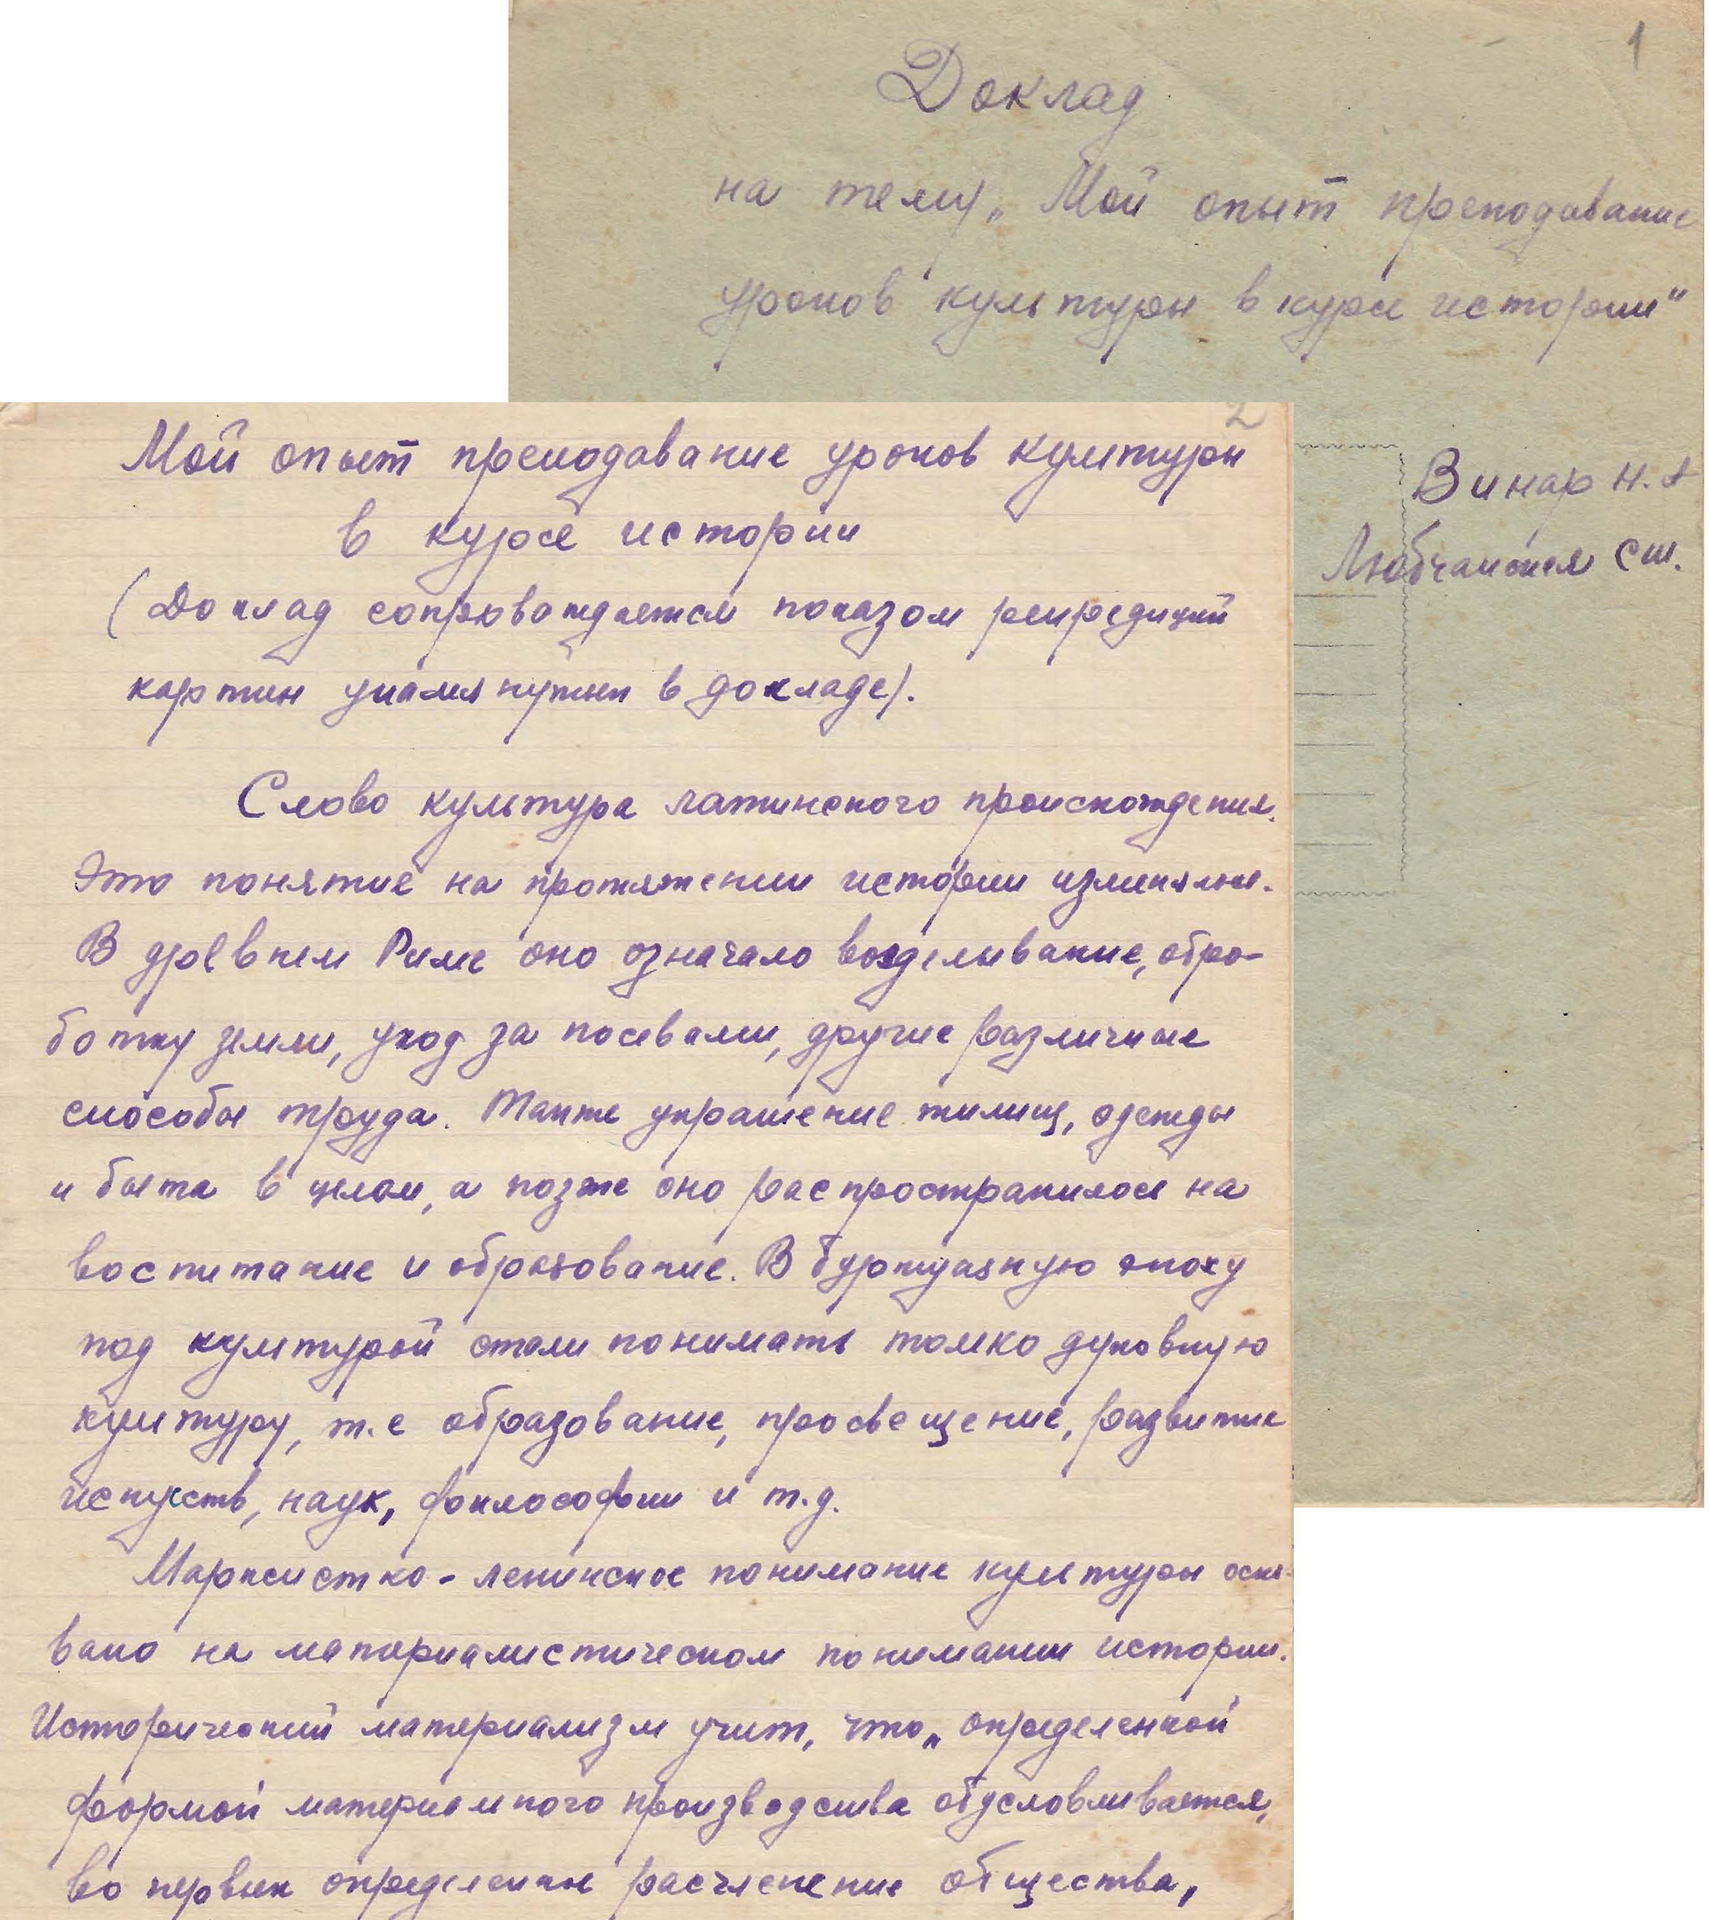 1
Доклад
на тему „Мой опыт преподавание
уроков культуры в курсе истории“
Винар Н. А
Любчанская сш.
2
Мой опыт преподавание уроков культуры
в курсе истории
(Доклад сопровождается показом репредиций
картин упамянутых в докладе).
Слово культура латинского происхождения.
Это понятие на протяжении истории изменялось.
В древнем Риме оно означало возделывание, обро-
ботку земли, уход за посевами, другие различные
способы труда. Также украшение жилищ, одежды
и быта в целом, а позже оно распространилось на
воспитание и образование. В буржуазную эпоху
под культурой стали понимать толко духовную
культуру, т.е образование, просвещение, развитие
искусств, наук, философии и т.д.
Марксистко-ленинское понимание культуры осно-
вано на материалистическом понимании истории.
Исторический материализм учит, что „определенной
формой материального производства обусловливается,
во первых определенное расчленение общества,